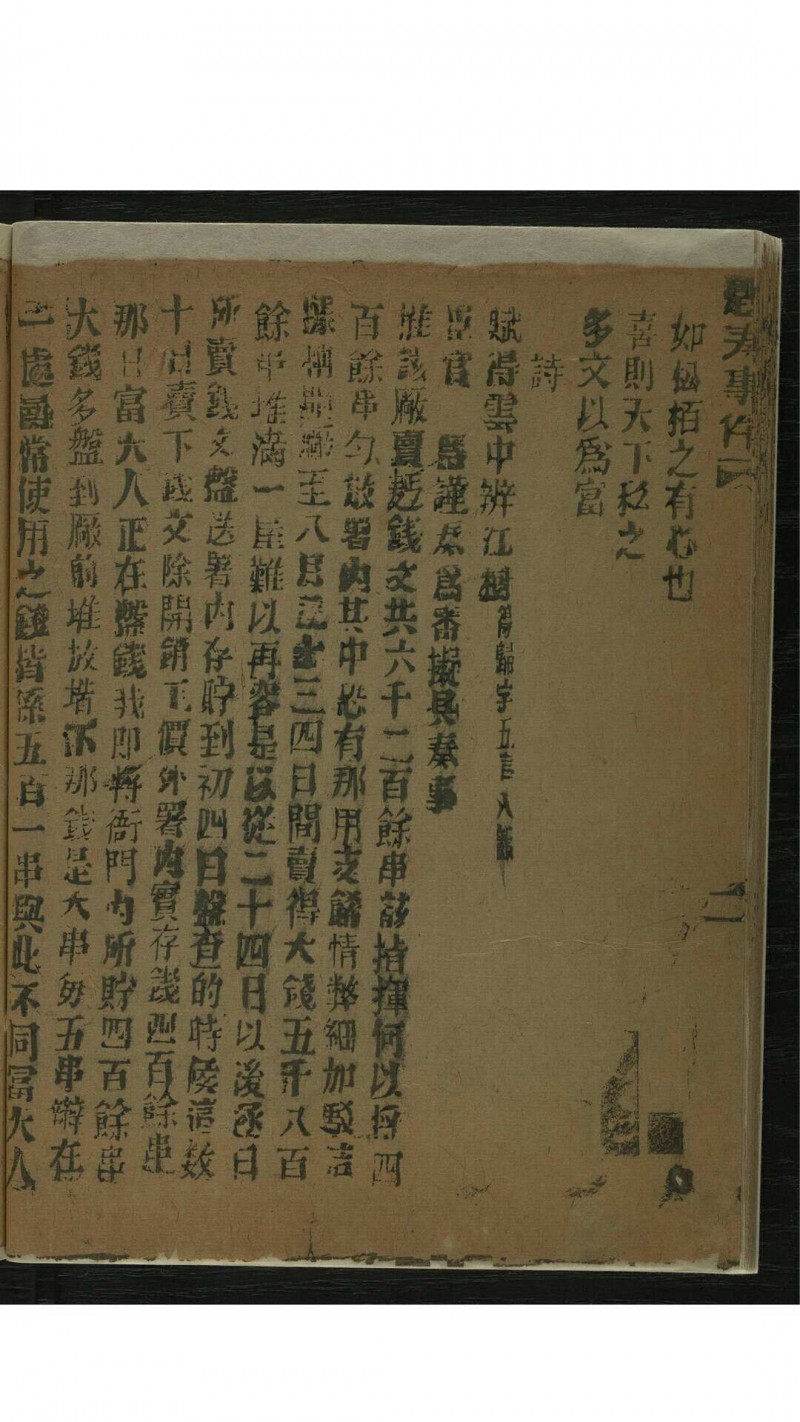 事件
二
如松栢之有心也
喜則天下私之
多文以爲富
詩
賦得雲中辨江樹得歸字五言八韻
臣官 爲謹奏爲審擬具奏事
准該廠賣過錢文共六千二百餘串該指揮何以將四
百餘串勻放署內其中恐有那用支飾情弊細加駁詰
據供至八月三四日間賣得大錢五千八百
餘串堆滿一屋難以再容是以從二十四日以後逐日
所賣錢文盤送署內存貯到初四日盤查的時候這數
十日賣下錢文除開銷工價外署內實存錢四百餘串
那日富大人正在盤錢我即將衙門內所貯四百餘串
大錢多盤到廠前堆放堦下那錢是大串每五串辮在
一處尋常使用之錢皆係五百一串與此不同富大人